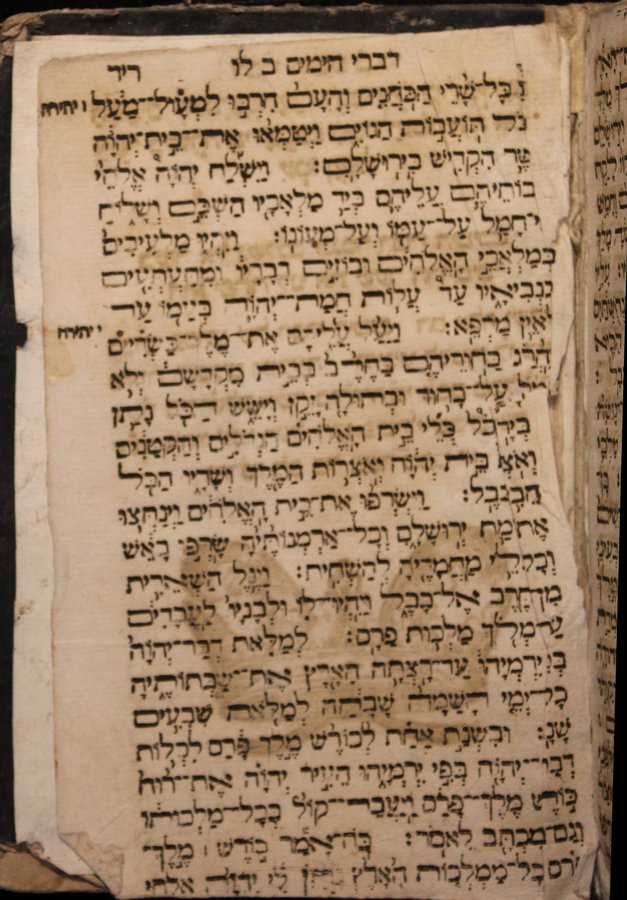 דברי הימים ב לו ריד
כָּל־שָׂרֵי הַכֹּהֲנִים וְהָעָם הִרְבּוּ לִמְעָול־מַעַל ו יתירה
תּוֹעֲבוֹת הַגּוֹיִם וַיְטַמְּאוּ אֶת־בֵּית יְהוָה
הִקְדִּישׁ בִּירוּשָׁלִָם׃ וַיִּשְׁלַח יְהוָה אֱלֹהֵי
בוֹתֵיהֶם עֲלֵיהֶם בְּיַד מַלְאָכָיו הַשְׁכֵּם וְשָׁלוֹחַ
חָמַל עַל־עַמּוֹ וְעַל־מְעוֹנוֹ׃ וַיִּהְיוּ מַלְעִיבִים
בְּמַלְאֲכֵי הָאֱלֹהִים וּבוֹזִים דְּבָרָיו וּמִתַּעְתְּעִים
בִּנְבִיאָיו עַד עֲלוֹת חֲמַת־יְהוָה בְּעַמּוֹ עַד
לְאֵין מַרְפֵּא׃ וַיַּעַל עֲלֵיהֶם אֶת־מֶלֶךְ כַּשְׂדִּיים י יתירה
בַּחוּרֵיהֶם בַּחֶרֶב בְּבֵית מִקְדָּשָׁם וְלֹא
עַל־בָּחוּר וּבְתוּלָה זָקֵן וְיָשֵׁשׁ הַכֹּל נָתַן
כְּלֵי בֵּית הָאֱלֹהִים הַגְּדֹלִים וְהַקְּטַנִּים
בֵּית יְהוָה וְאֹצְרוֹת הַמֶּלֶךְ וְשָׂרָיו הַכֹּל
בָבֶל׃ וַיִּשְׂרְפוּ אֶת־בֵּית הָאֱלֹהִים וַיְנַתְּצוּ
אֵת חוֹמַת יְרוּשָׁלִָם וְכָל־אַרְמְנוֹתֶיהָ שָׂרְפוּ בָאֵשׁ
וְכָל־כְּלֵי מַחֲמַדֶּיהָ לְהַשְׁחִית׃ וַיֶּגֶל הַשְּׁאֵרִית
מִן־הַחֶרֶב אֶל־בָּבֶל וַיִּהְיוּ־לוֹ וּלְבָנָיו לַעֲבָדִים
עַד־מְלֹךְ מַלְכוּת פָּרָס׃ לְמַלֹּאת דְּבַר־יְהוָה
בְּפִי יִרְמְיָהוּ עַד־רָצְתָה הָאָרֶץ אֶת־שַׁבְּתוֹתֶיהָ
כָּל־יְמֵי הָשַּׁמָּה שָׁבָתָה לְמַלֹּאות שִׁבְעִים
שָׁנָה׃ וּבִשְׁנַת אַחַת לְכוֹרֶשׁ מֶלֶךְ פָּרַס לִכְלוֹת
דְּבַר־יְהוָה בְּפִי יִרְמְיָהוּ הֵעִיר יְהוָה אֶת־רוּחַ
כּוֹרֶשׁ מֶלֶךְ־פָּרַס וַיַּעֲבֶר־קוֹל בְּכָל־מַלְכוּתוֹ
וְגַם־בְּמִכְתָּב לֵאמֹר׃ כֹּה־אָמַר כּוֹרֶשׁ מֶלֶךְ־
פָּרַס כָּל־מַמְלְכוֹת הָאָרֶץ נָתַן לִי יְהוָה אֱלֹהֵי